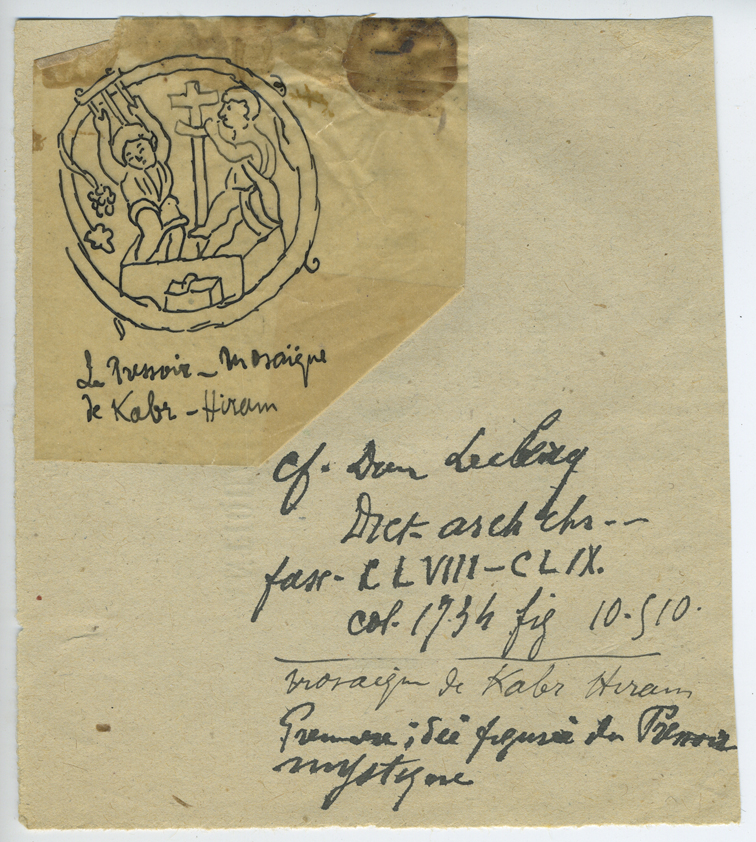 Le Pressoir - Mosaïque
de Kabr - Hiram
cf. Dom Leclercq
Dict. arch chr--
fasc. CLVIII-CLIX.
col. 1734 fig 10.510.
mosaique de Kabr Hiram
Première idée figurée du Pressoir
mystique